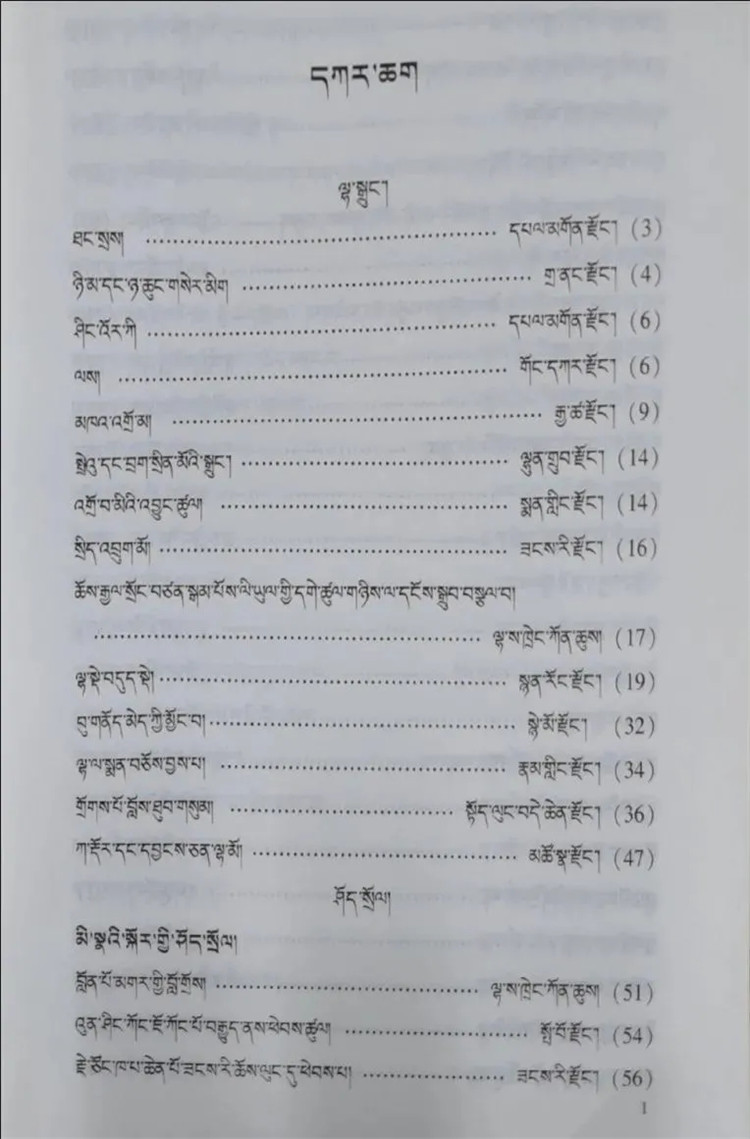 དཀར་ཆག
ལྷ་སྒྲུང་།
ཐང་སྲས། ………………………………………… དཔལ་མགོན་རྫོང་། (3)
ཉི་མ་དང་ཉ་ཆུང་གསེར་མིག ………………………………… གྲ་ནང་རྫོང་། (4)
ཤིང་འོར་ཀི ………………………………………… དཔལ་མགོན་རྫོང་། (6)
ལས། ………………………………………………… གོང་དཀར་རྫོང་། (6)
མཁའ་འགྲོ་མ། …………………………………………… རྒྱ་ཚ་རྫོང་། (9)
སྤྲེའུ་དང་བྲག་སྲིན་མོའི་སྒྲུང་། ……………………………… ལྷུན་གྲུབ་རྫོང་། (14)
འགྲོ་བ་མིའི་འབྱུང་ཚུལ། ………………………………… སྨན་གླིང་རྫོང་། (14)
སྲིད་འབྲུག་མོ། ………………………………………… ཟངས་རི་རྫོང་། (16)
ཆོས་རྒྱལ་སྲོང་བཙན་སྒམ་པོས་ལི་ཡུལ་གྱི་དགེ་ཚུལ་གཉིས་ལ་དངོས་སྒྲུབ་བསྩལ་བ།
……………………………………………… ལྷ་ས་ཁྲེང་ཀོན་ཆུས། (17)
ལྷ་སྡེ་བདུད་སྡེ། ………………………………………… སྙན་རོང་རྫོང་། (19)
བུ་གནོད་མེད་ཀྱི་མྱོང་བ། …………………………………… སྙེ་མོ་རྫོང་། (32)
ལྷ་ལ་སྨན་བཅོས་བྱས་པ། ………………………………… རྣམ་གླིང་རྫོང་། (34)
གྲོགས་པོ་བློས་ཐུབ་གསུམ། …………………………… སྟོད་ལུང་བདེ་ཆེན་རྫོང་། (36)
ཀ་རྡོར་དང་དབྱངས་ཅན་ལྷ་མོ། ……………………………… མཚོ་སྣ་རྫོང་། (47)
ཤོད་སྲོལ།
མི་སྣའི་སྐོར་གྱི་ཤོད་སྲོལ།
བློན་པོ་མགར་གྱི་བློ་གྲོས། ……………………………… ལྷ་ས་ཁྲེང་ཀོན་ཆུས། (51)
འུན་ཤིང་ཀོང་ཇོ་ཀོང་པོ་བརྒྱུད་ནས་ཕེབས་ཚུལ། ……………………… སྤོ་བོ་རྫོང་། (54)
རྗེ་ཙོང་ཁ་པ་ཆེན་པོ་ཟངས་རི་ཆོས་ལུང་དུ་ཕེབས་པ། ………………… ཟངས་རི་རྫོང་། (56)
1